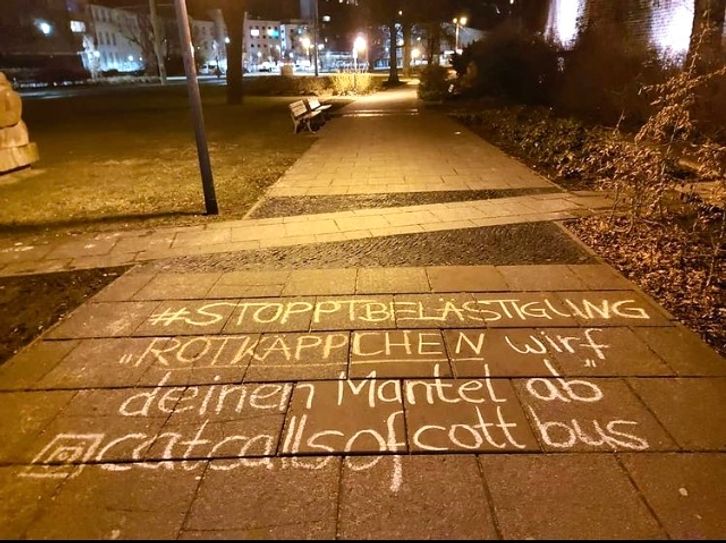 #STOPPTBELÄSTIGUNG
„ROTKÄPPCHEN wirf
deinen Mantel ab“
@catcallsofcottbus